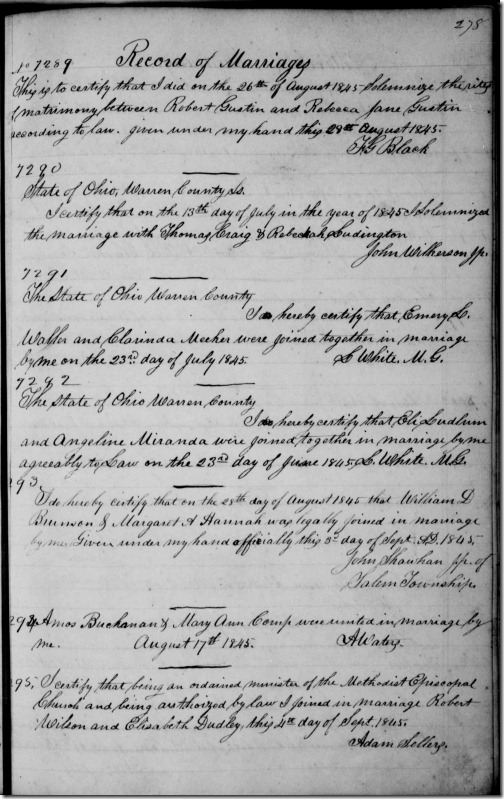 278
No 7289 Record of Marriages
This is to certify that I did on the 26th of August 1845 Solemnize the rites
of matrimony between Robert Gustin and Rebecca Jane Gustin
according to law. given under my hand this 29th August 1845.
H G Black
7290
State of Ohio, Warren County Ss.
I certify that on the 13th day of July in the year of 1845 I Solemnized
the marriage with Thomas, Craig & Rebeckah, Ludington
John Wilkerson Jp.
7291
The State of Ohio Warren County
I do hereby certify that, Emery L.
Waller and Clarinda Meeker were joined together in marriage
by me on the 23rd day of July 1845. L White. M. G.
7282
The State of Ohio Warren County
I do hereby certify that Eli, Ludlum
and Angeline Miranda wire joined together in marriage by me
agreeably to Law on the 23rd day of June 1845. L. White. M.G.
293
I do hereby certify that on the 28th day of August 1845 that William D
Brunson & Margaret A Hannah was legally joined in marriage
by me Given under my hand officially this 3d day of Sept. AD. 1845
John Shawhan Jp. of
Salem Township.
294. Amos Buchanan & Mary Ann Comp were united in marriage by
me. August 17th 1845. A Waters.
295. I certify, that being an ordained minister of the Methodist Episcopal
Church and being authorized by law I joined in marriage Robert
Wilson and Elisabeth Dudley, this 4th day of Sept. 1845.
Adam Sellers.